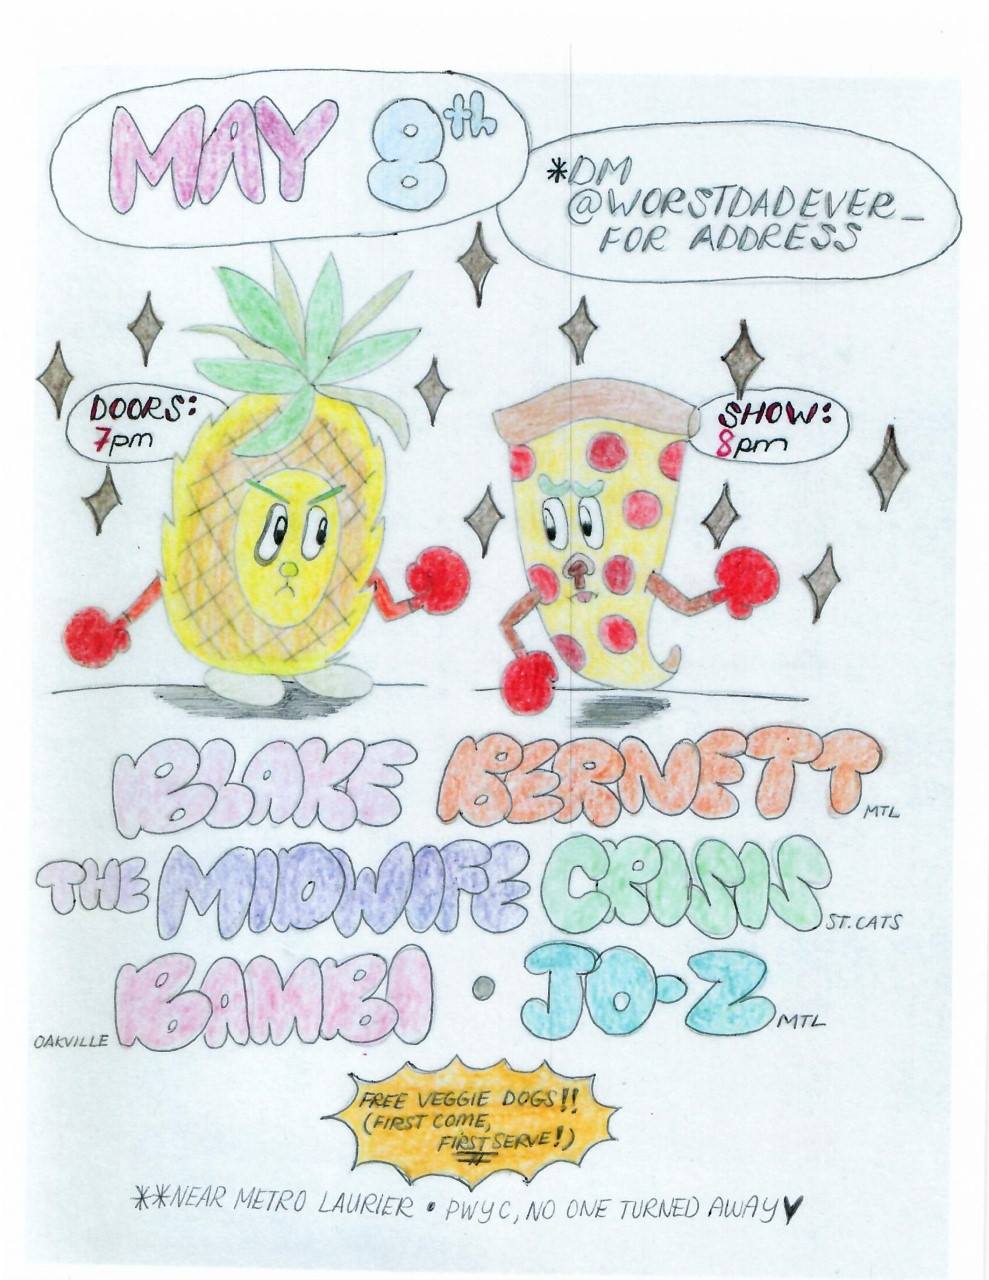 MAY 8th
*DM
@WORSTDADEVER_
FOR ADDRESS
DOORS:
7pm
SHOW:
8pm
BLAKE BERNETT MTL
THE MIDWIFE CRISIS ST. CATS
OAKVILLE BAMBI • JO-Z MTL
FREE VEGGIE DOGS!!
(FIRST COME,
FIRST SERVE!)
**NEAR METRO LAURIER • PWYC, NO ONE TURNED AWAY♥